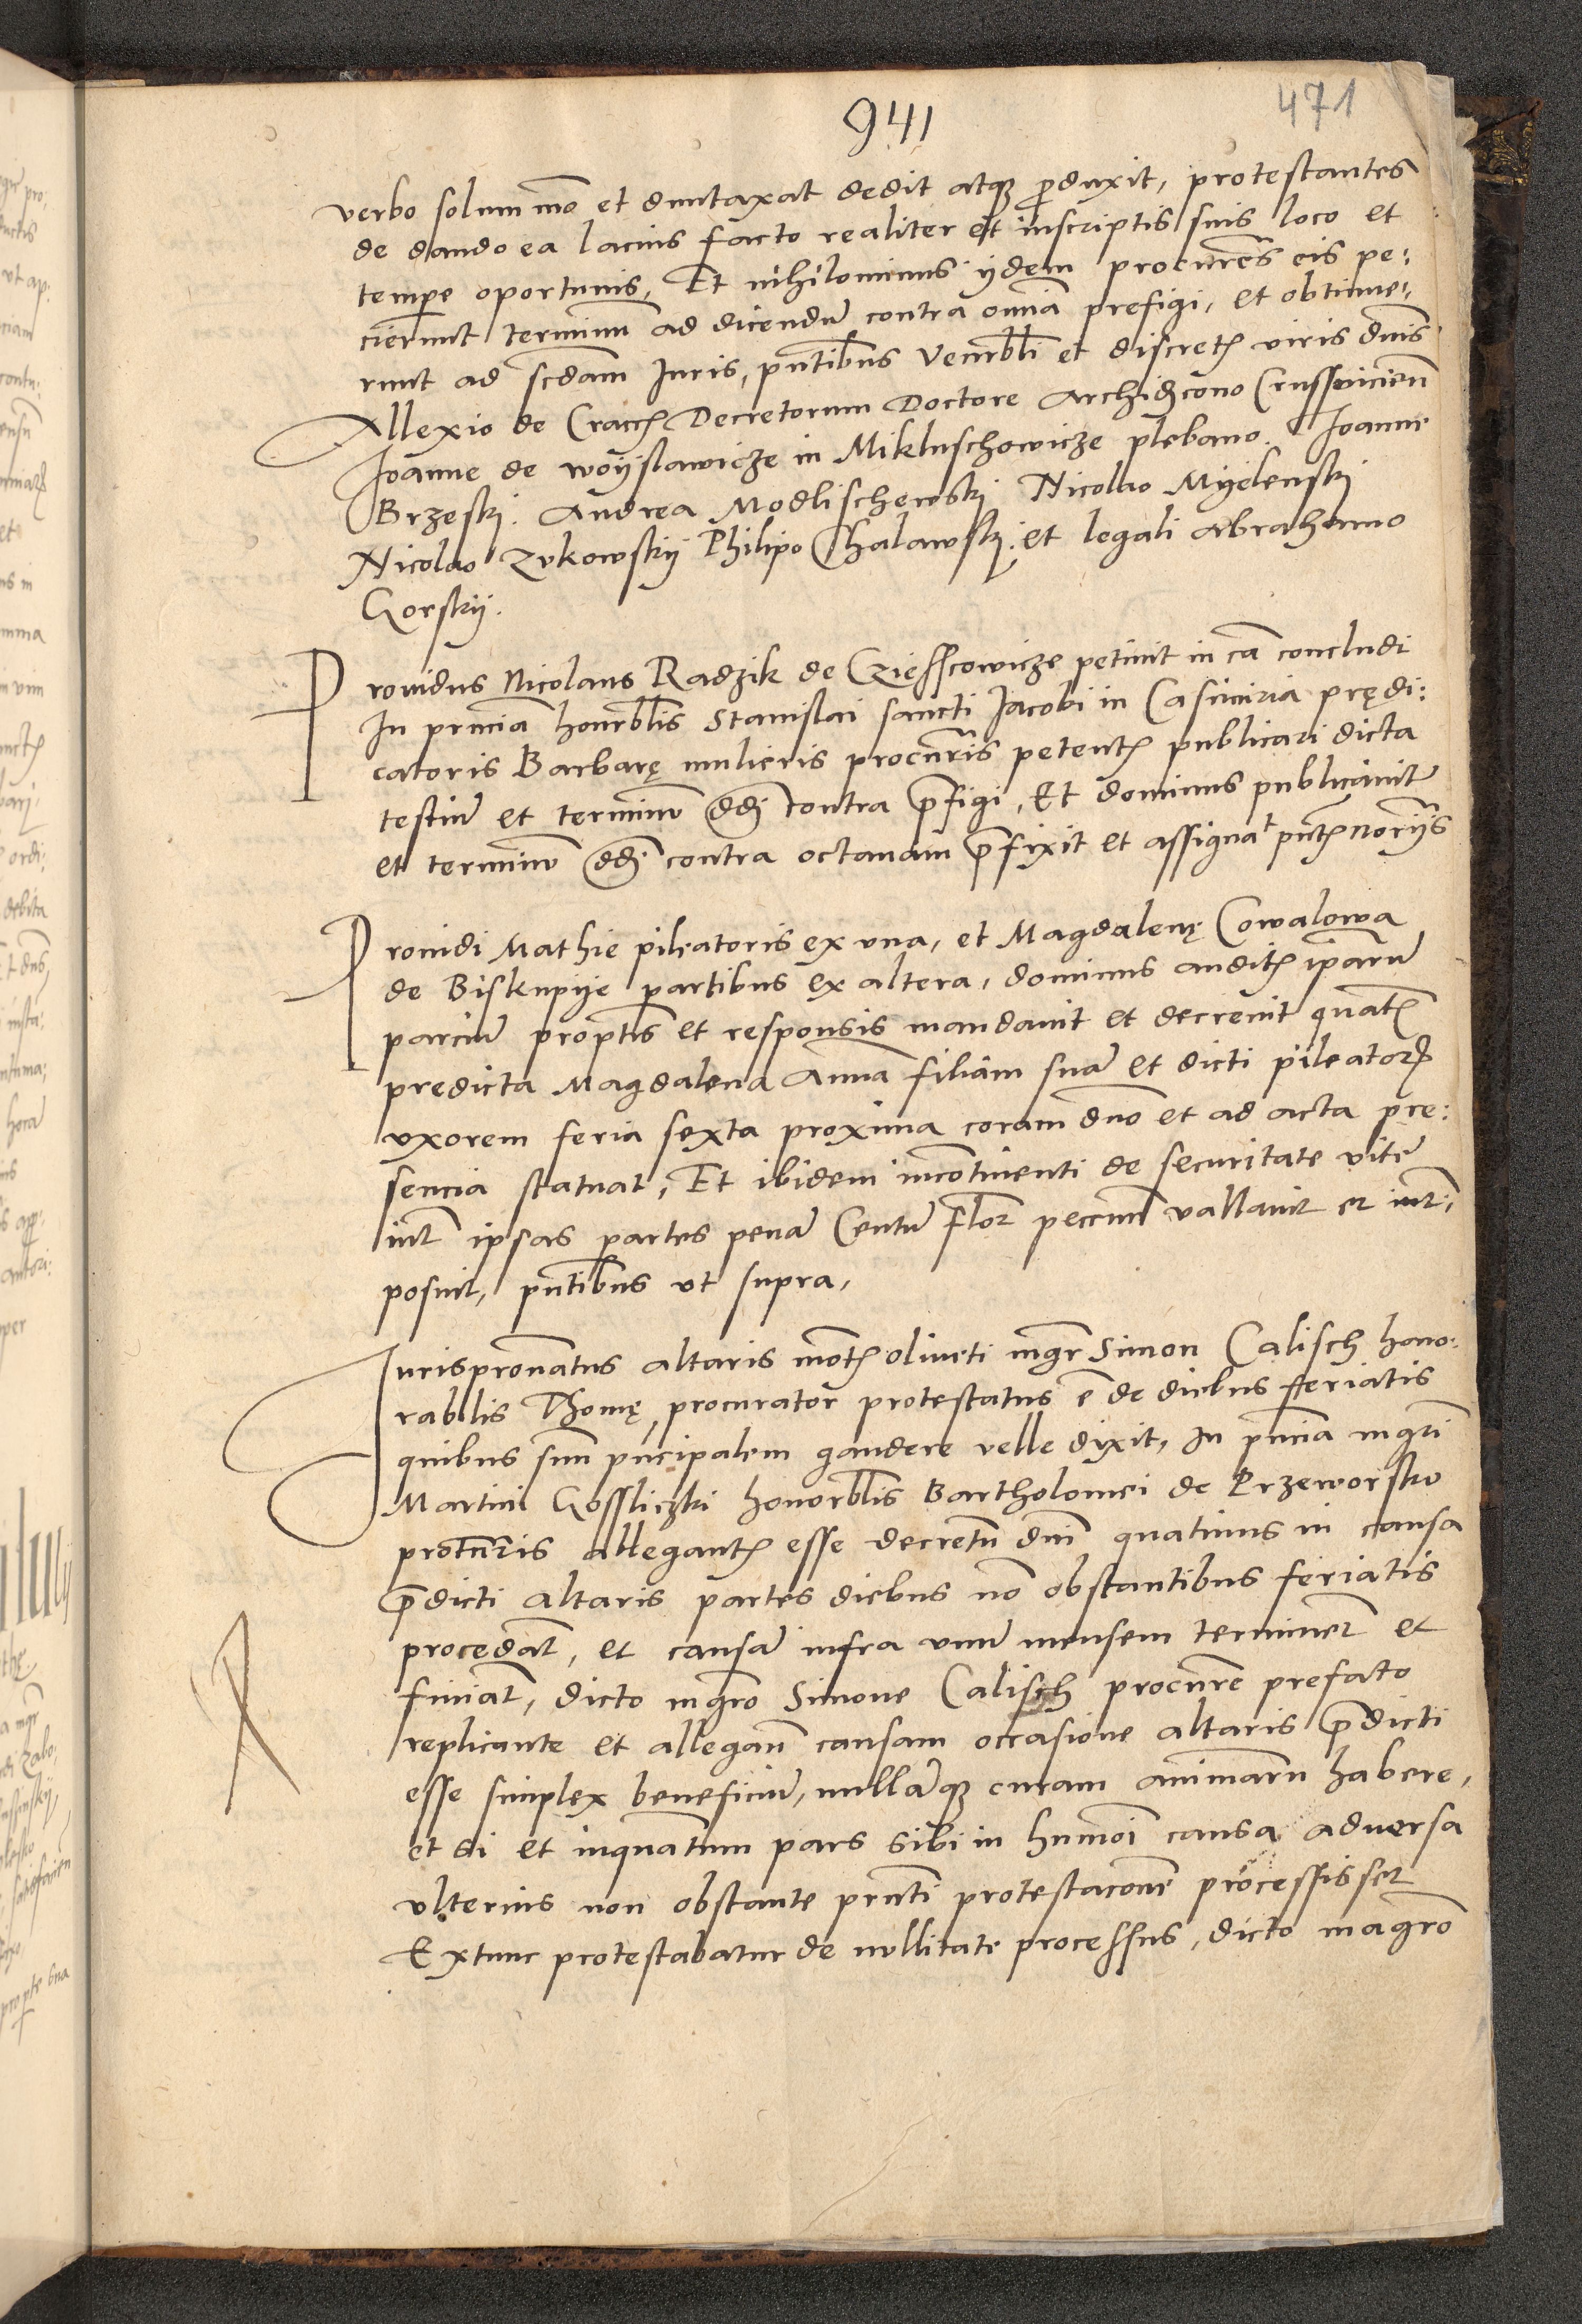 941
471
verbo solum mo et duntaxat dedit atque produxit, protestantes
de dando ea lacius facto realiter et inscriptis suis loco et
tempe oportunis, Et nihilominus ijdem procures eis pe:
cierunt terminu ad dicendu contra omia prefigi, et obtinue:
runt ad scdam Iuris, pntibus Venerbli et discret viris dnis
Allexio de Cracc Decretorum Doctore Archidicono Crusswicien
Joanne de woyslawicze in Mikluschowicze plebano. Joanne
Brzeski. Andrea Modlischewski Nicolao Myelenski
Nicolao Zukowskij Philipo Chalawski. et legali Abrahamo
Gorskij.
Prouidus Nicolaus Radzik de Czieffcowicze petiuit in ca concludi
In prncia honrblis Stanislai sancti Jacobi in Casimiria prędi:
catoris Barbarę mulieris procuris petent publicari dicta
testiu et terminu ddi contra pfigi, Et dominus publicauit
et terminu ddi contra octauam pfixit et assignat pnt norijs
Prouidi Mathie pileatoris ex vna, et Magdalenę Cowalowa
de Biskupije partibus ex altera, dominus audit ipsaru
parciu proptis et responsis mandauit et decreuit quat
predicta Magdalena Anna filiam sua et dicti pileator
vxorem feria sexta proxima coram dno et ad acta pre:
sencia statuat, Et ibidem incontinenti de securitate vite
int ipsas partes pena Centu flor peccun vallauit et int:
posuit, pntibus vt supra,
Jurispronatus altaris mont oliueti mgr Simon Calisch hono:
rablis Thomę procurator protestatus e de diebus fferiatis
quibus suu pncipalem gaudere velle dixit, In pncia mgri
Martini Gossliczki honorblis Bartholomei de Przeworsko
procuris allegant esse decretu dni quatinus in causa
pdicti altaris partes diebus no obstantibus feriatis
procędat, et causa infra vnu mensem terminet et
finiat, dicto mgro Simone Calisch procure prefato
replicante et allegan causam occasione altaris pdicti
esse simplex beneficiu, nullaque curam animaru habere,
et si et inquantum pars sibi in humoi causa aduersa
vlterius non obstante prnti protestacone processisset
Extunc protestabatur de nullitate processus, dicto magro